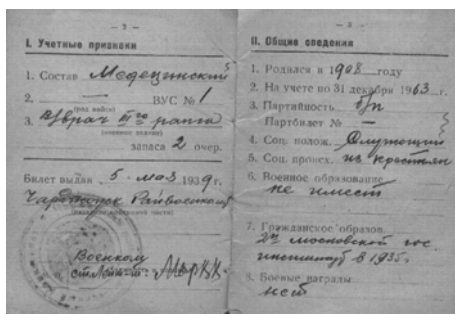 — 2 —
I. Учетные признаки
1. Состав Медецинский
2. — ВУС № 1
(род войск)
3. В/врач III го ранга
(военное звание)
запаса 2 очер.
Билет выдан 5. мая 1939 г.
Райвоенкомат
Военком
Марк
— 3 —
II. Общие сведения
1. Родился в 1908 году
2. На учете по 31 декабря 1963 г.
3. Партийность б/п
Партбилет № —
4. Соц. полож. Служащий
5. Соц. происх. из крестьян
6. Военное образование
не имеет
7. Гражданское образов.
2й московской гос.
институт в 1935г.
8. Боевые награды
нет